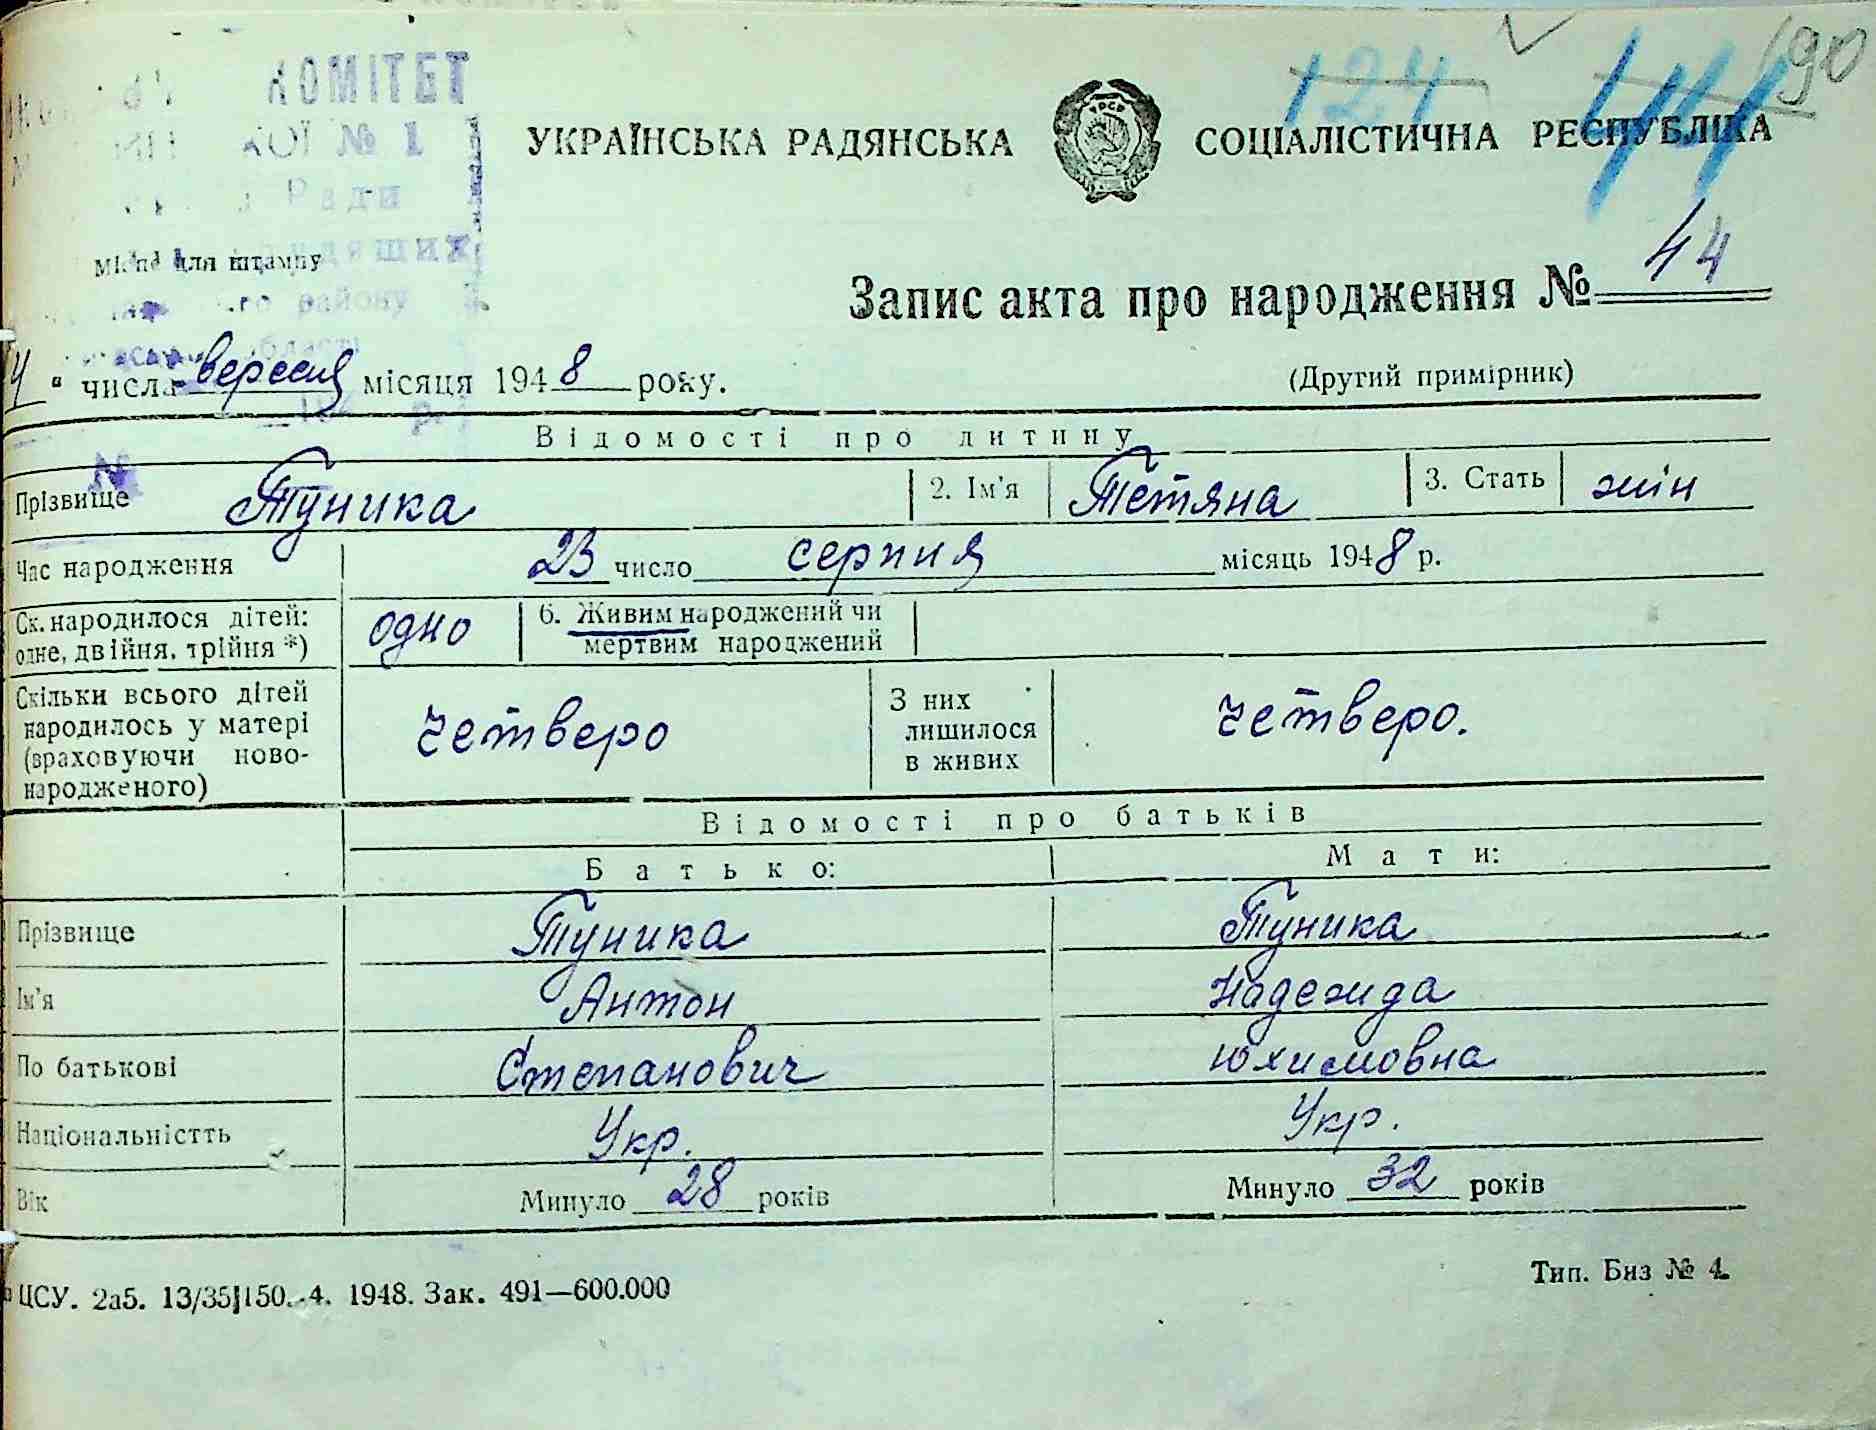 190
124
КОМІТЕТ
№ 1
Ради
УКРАЇНСЬКА РАДЯНСЬКА СОЦІАЛІСТИЧНА РЕСПУБЛІКА
Місце для штампу
району
області
Запис акта про народження № 44
4 " числа вересня місяця 1948 року.
(Другий примірник)
Відомості про дитину
№
Прізвище Туника 2. Ім'я Тетяна 3. Стать жін
Час народження 23 число серпня місяць 1948 р.
Ск. народилося дітей: одно 6. Живим народжений чи
одне, двійня, трійня *) мертвим народжений
Скільки всього дітей четверо З них четверо.
народилось у матері лишилося
(враховуючи ново- в живих
народженого)
Відомості про батьків
Батько: Мати:
Прізвище Туника Туника
Ім'я Антон Надежда
По батькові Степанович Юхимовна
Національністть Укр. Укр.
Вік Минуло 28 років Минуло 32 років
ЦСУ. 2а5. 13/35 150. 4. 1948. Зак. 491—600.000
Тип. Биз № 4.